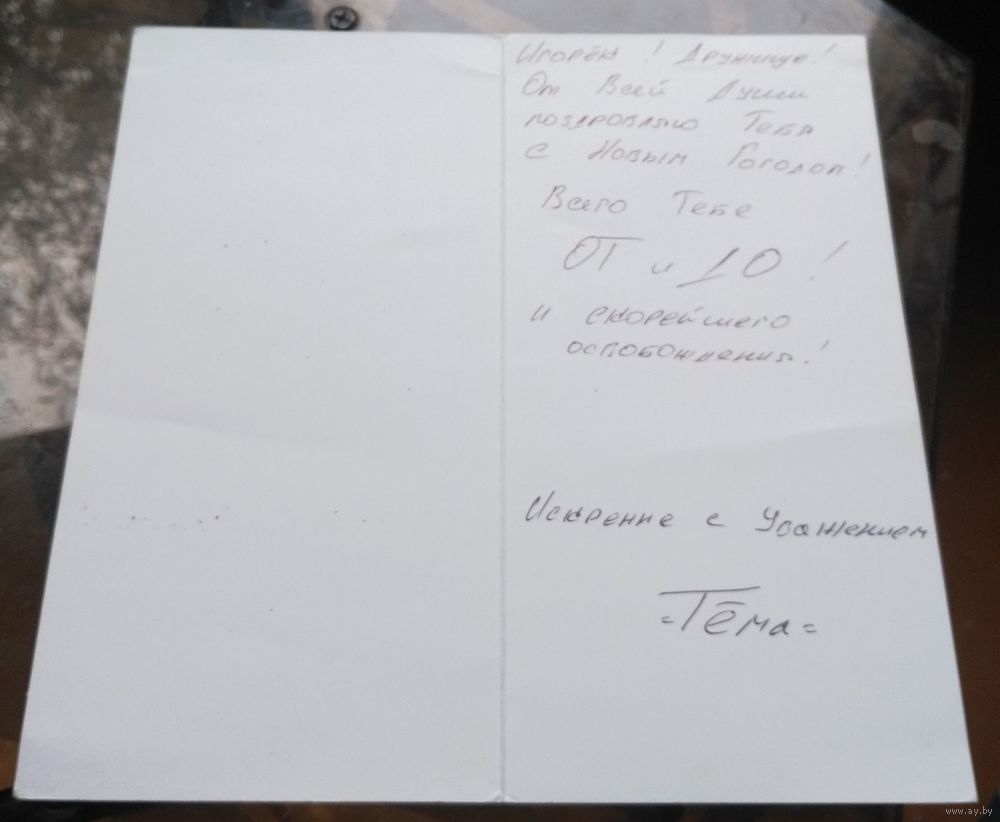 Игорёк! Дружище!
От Всей Души
поздровляю Тебя
с Новым Гогодом!
Всего Тебе
ОТ и ДО!
и скорейшего
освобождения!
Искренне с Уважением
=Тёма=
www.ay.by